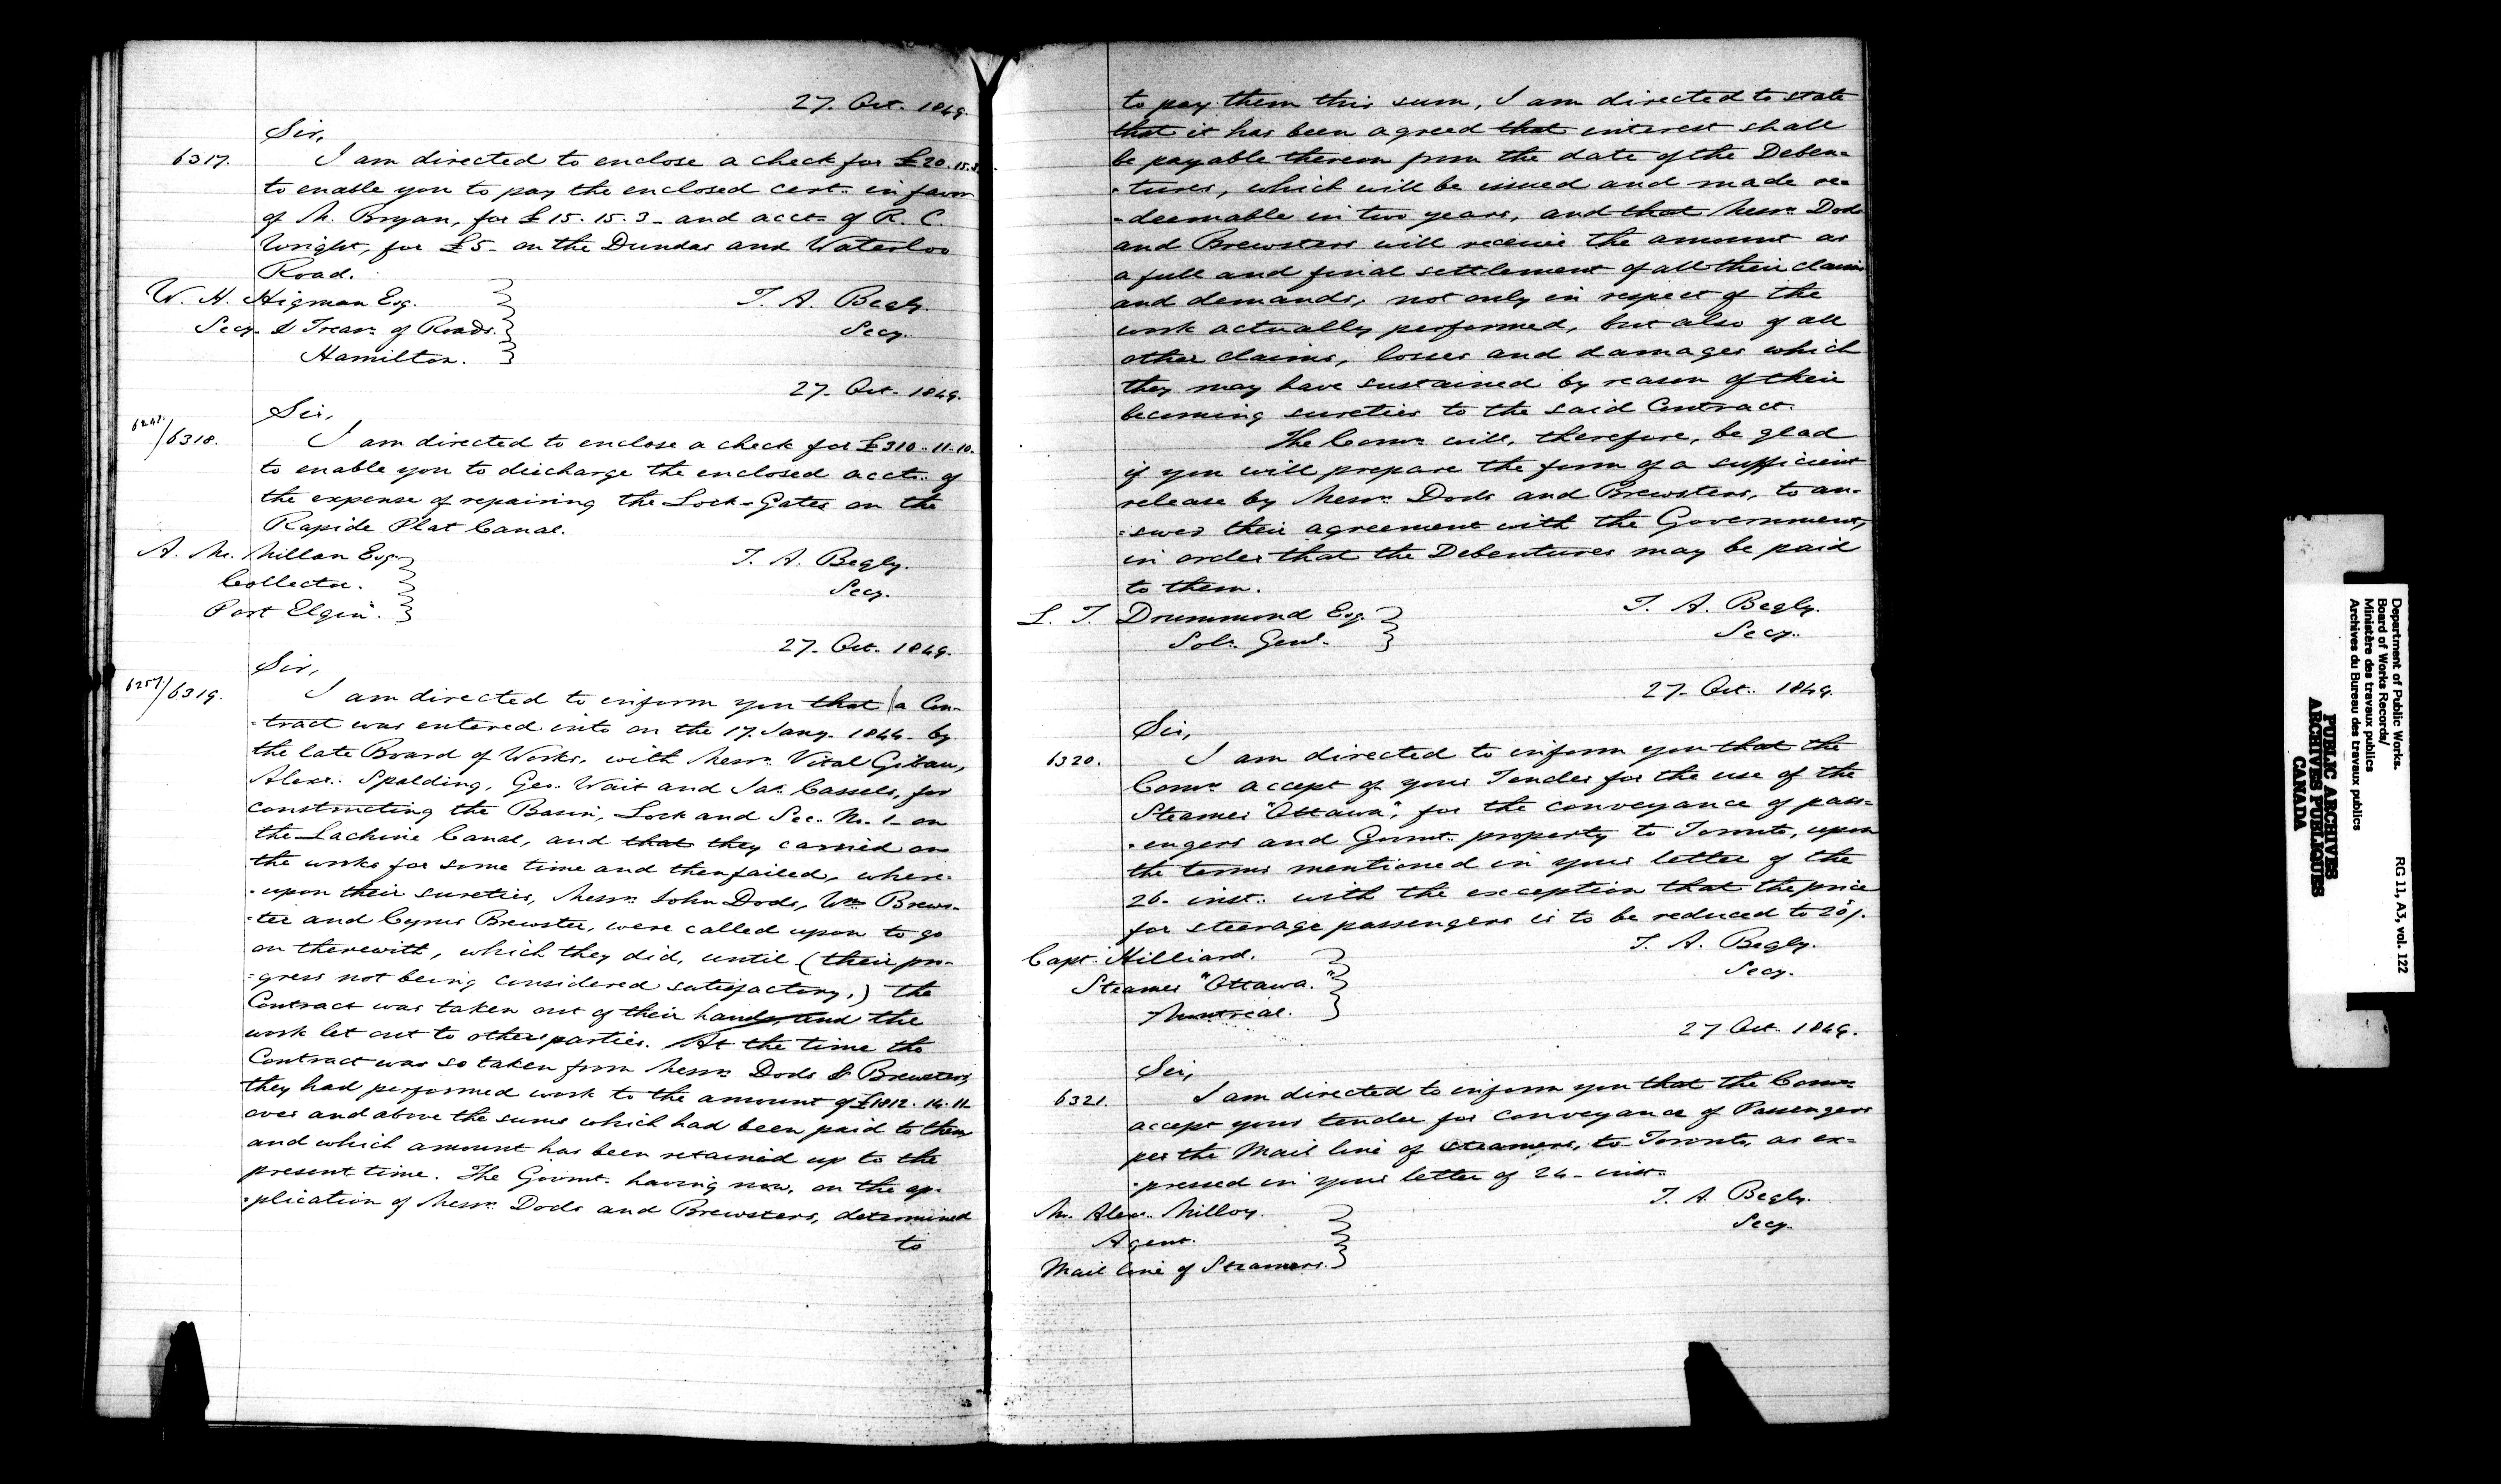 27. Oct. 1849.
Sir,
6317. I am directed to enclose a check for £20.15.3.
to enable you to pay the enclosed cert. in favor
of M. Bryan, for £15.15.3 - and acct. of R. C.
Wright, for £5 - on the Dundas and Waterloo
Road.
W. H. Higman Esq.
Secy. & Treasr. of Roads.
Hamilton.
T. A. Begly.
Secy.
27. Oct. 1849.
Sir,
/6318. I am directed to enclose a check for £310..11.10.
to enable you to discharge the enclosed acct. of
the expense of repairing the Lock-Gates on the
Rapide Plat Canal.
A. Mc. Millan Esq.
Collector.
Port Elgin.
T. A. Begly.
Secy.
27. Oct. 1849.
Sir,
6257./6319. I am directed to inform you that a Con-
-tract was entered into on the 17. Jany. 1844 - by
the late Board of Works, with Messrs. Vital Gibau,
Alexr. Spalding, Geo. Wait and Jas. Cassels, for
constructing the Basin, Lock and Sec. No. 1 - on
the Lachine Canal, and that they carried on
the works for some time and then failed, where-
-upon their sureties, Messrs. John Dods, Wm. Brews-
-ter and Cyrus Brewster, were called upon to go
on therewith, which they did, until (their pro-
-gress not being considered satisfactory,) the
Contract was taken out of their hands, and the
work let out to other parties. At the time the
Contract was so taken from Messrs. Dods & Brewsters,
they had performed work to the amount of £1812.14.11
over and above the sums which had been paid to them
and which amount has been retained up to the
present time. The Govmt. having now, on the ap-
-plication of Messrs. Dods and Brewsters, determined
to
to pay them this sum, I am directed to state
that it has been agreed that interest shall
be payable thereon from the date of the Deben-
-tures, which will be issued and made re-
-deemable in two years, and that Messrs. Dods
and Brewsters will receive the amount as
a full and final settlement of all their claims
and demands, not only in respect of the
work actually performed, but also of all
other claims, losses and damages which
they may have sustained by reason of their
becoming sureties to the said Contract.
The Comrs. will, therefore, be glad
if you will prepare the form of a sufficient
release by Messrs. Dods and Brewsters, to an-
-swer their agreement with the Government,
in order that the Debentures may be paid
to them.
L. T. Drummond Esq.
Solr. Genl.
T. A. Begly.
Secy.
27. Oct. 1849.
Sir,
6320. I am directed to inform you that the
Comrs. accept of your Tender for the use of the
Steamer "Ottawa", for the conveyance of pass-
-engers and Govmt. property to Toronto, upon
the terms mentioned in your letter of the
26. inst. with the exception that the price
for steerage passengers is to be reduced to 20/.
Capt. Hilliard.
Steamer "Ottawa."
Montreal.
T. A. Begly.
Secy.
27 Oct. 1849.
Sir,
6321. I am directed to inform you that the Comrs.
accept your tender for conveyance of Passengers
per the Mail line of Steamers, to Toronto, as ex-
-pressed in your letter of 24 - inst.
Mr. Alexr. Milloy.
Agent.
Mail line of Steamers.
T. A. Begly.
Secy.
Department of Public Works.
Board of Works Records/
Ministère des travaux publics
Archives du Bureau des travaux publics
RG 11, A3, vol. 122
PUBLIC ARCHIVES
ARCHIVES PUBLIQUES
CANADA